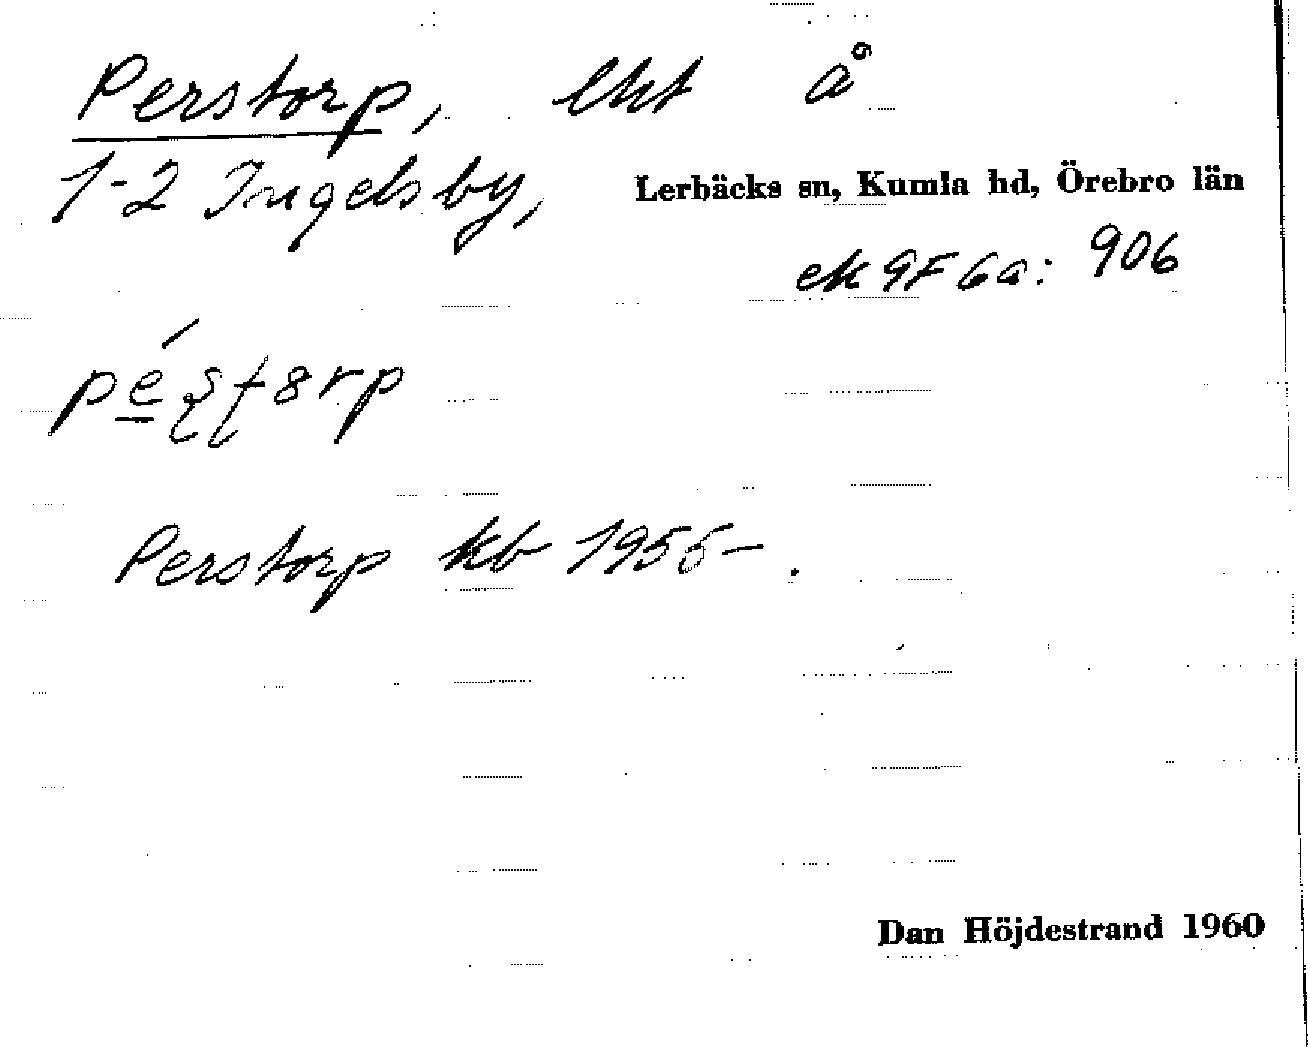 Perstorp, lht å
1-2 Ingelsby, Lerbäcks sn, Kumla hd, Örebro län
ek 9F6a: 906
Perstorp kb 1955-.
Dan Höjdestrand 1960